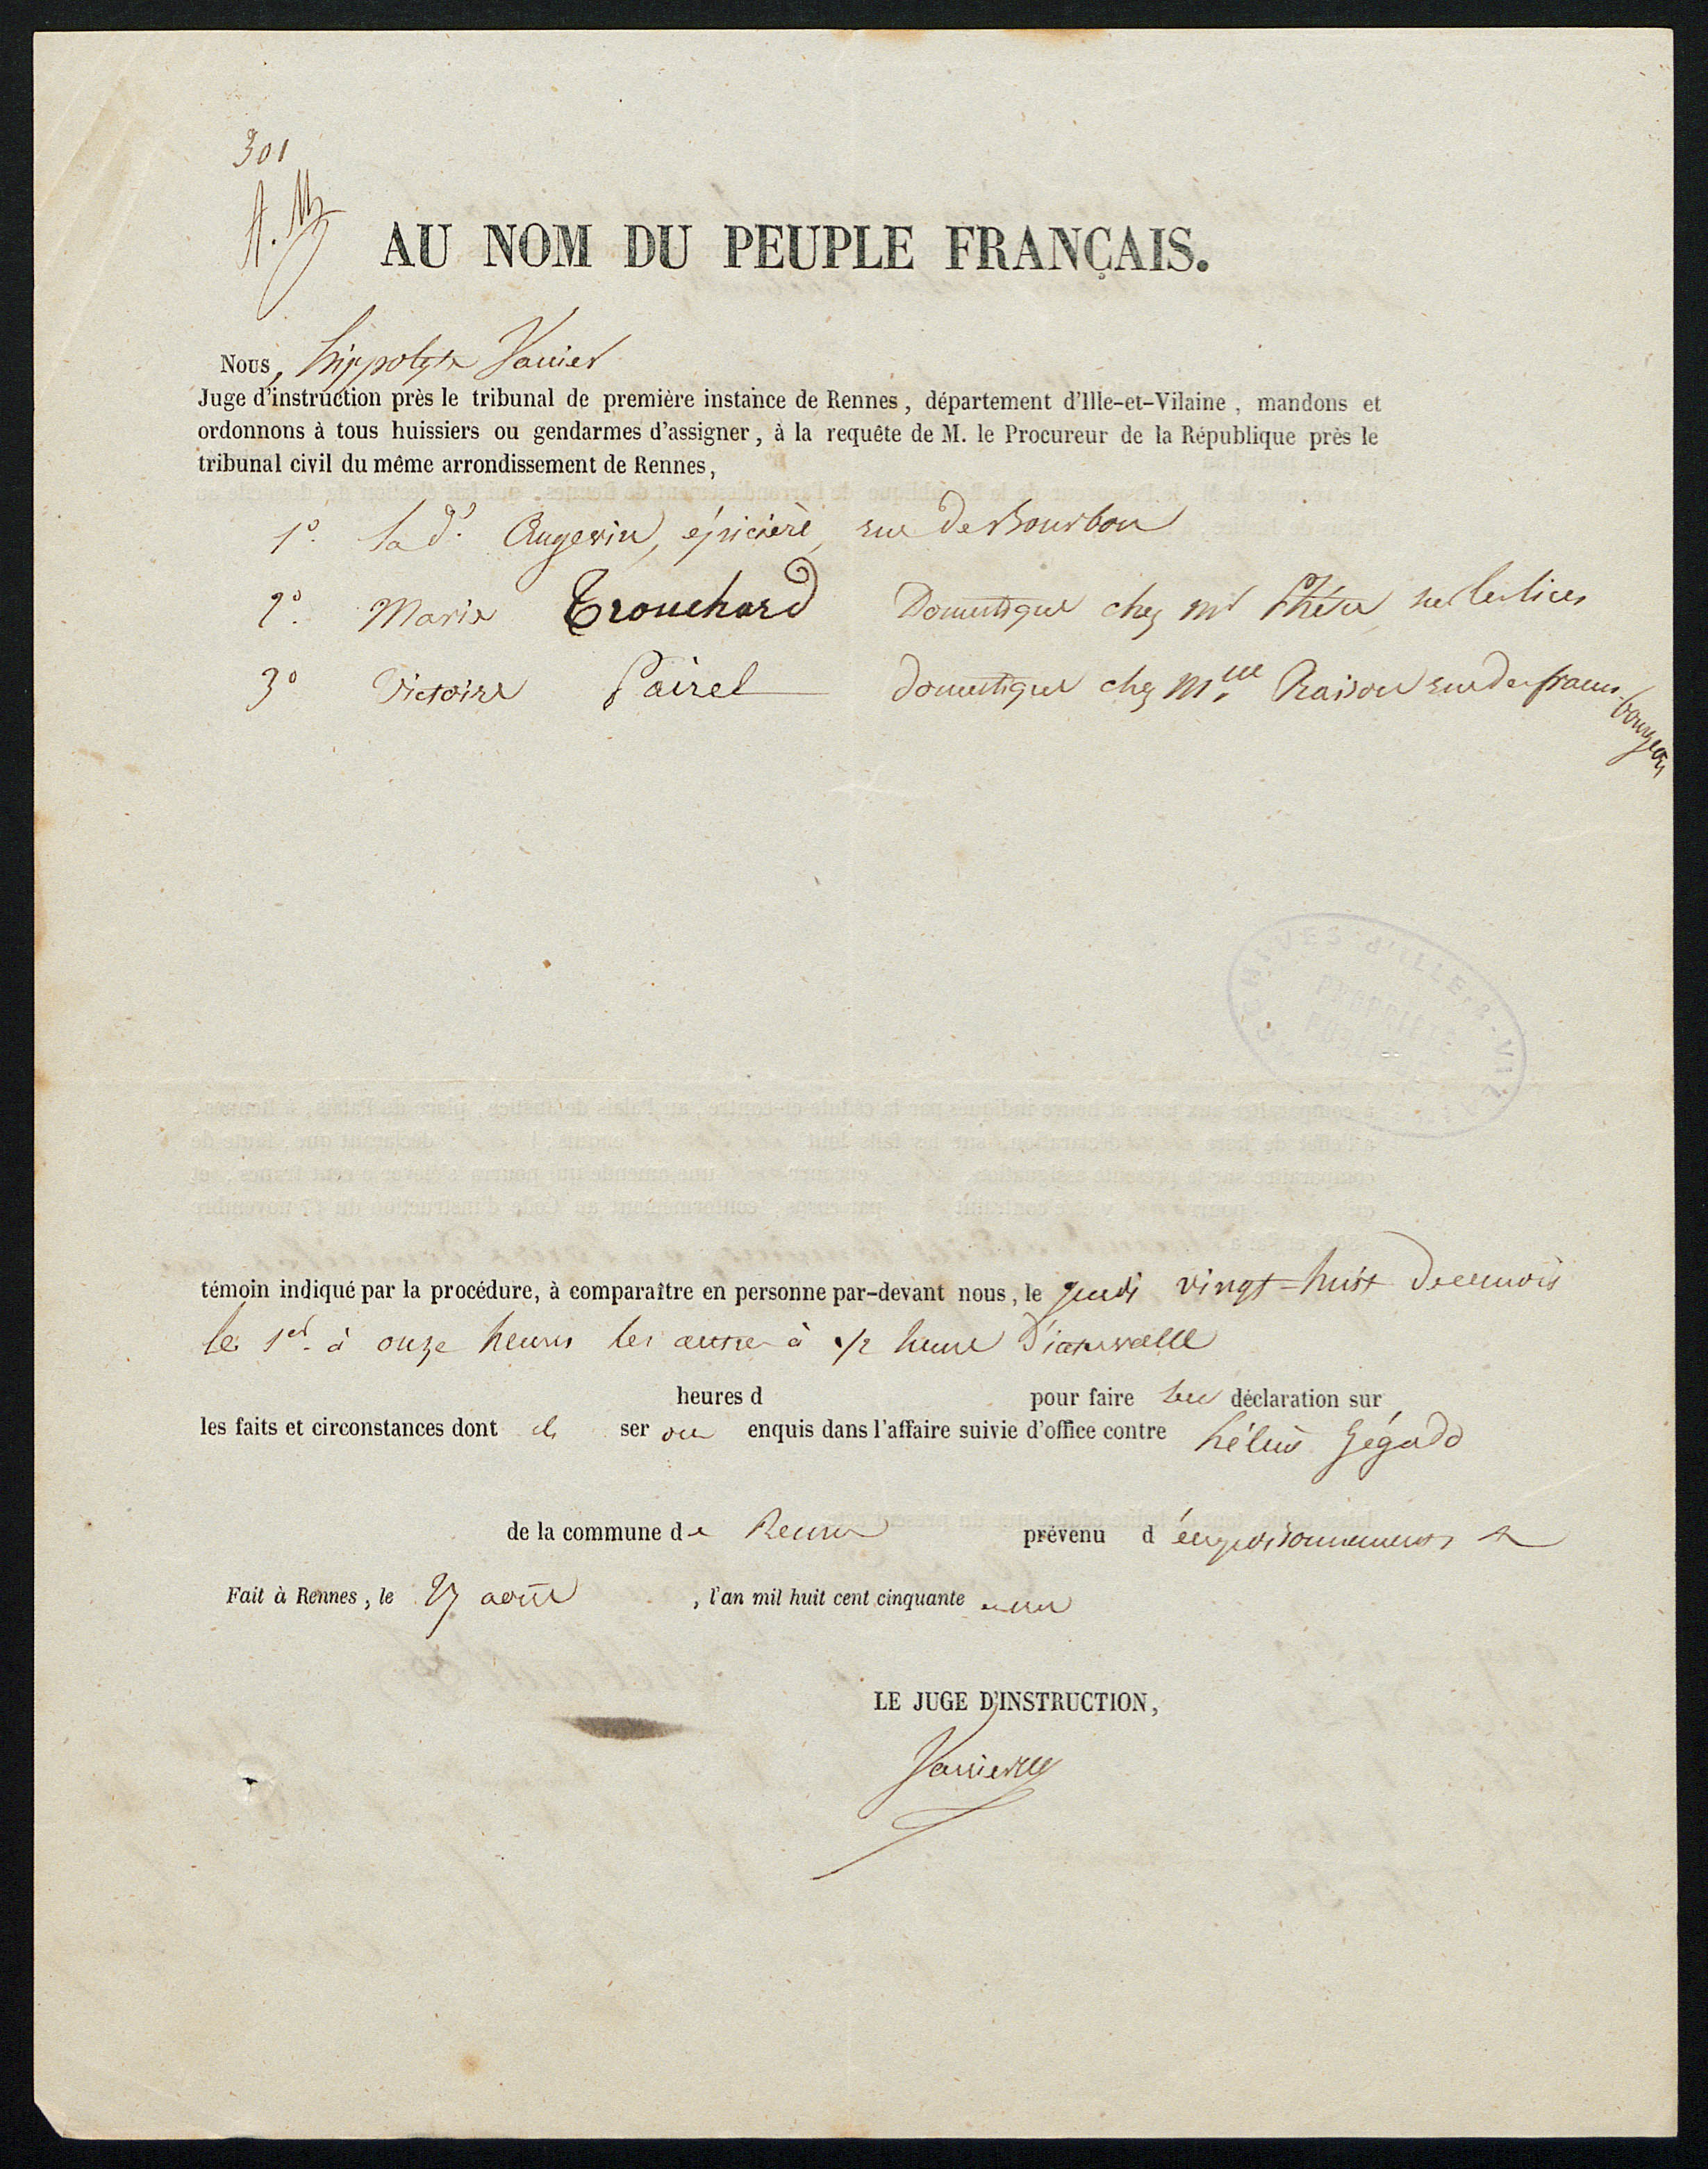 301
A. M
AU NOM DU PEUPLE FRANÇAIS.
Nous, hippolyte Vannier
Juge d'instruction près le tribunal de première instance de Rennes, département d'Ille-et-Vilaine, mandons et
ordonnons à tous huissiers ou gendarmes d'assigner, à la requête de M. le Procureur de la République près le
tribunal civil du même arrondissement de Rennes,
1º. la de. Angevin, épicière, rue de Bourbon
2º. Marie Trouchard Domestique chez mr sur les lices
3º Victoire Pairel domestique chez Melle Raison rue des francs-
bourgeois
ARCHIVES d'ILLE-&-VIL
PROPRIÉTÉ
PUBLIQUE
témoin indiqué par la procédure, à comparaître en personne par-devant nous, le Jeudi vingt-huit de ce mois
le 1er. à onze heures les autres à 1/2 heure d'intervalle
heures d pour faire leur déclaration sur
les faits et circonstances dont ils seront enquis dans l'affaire suivie d'office contre hélène Jégado
de la commune de Rennes prévenu d'empoisonnements
Fait à Rennes, le 27 août, l'an mil huit cent cinquante un
LE JUGE D'INSTRUCTION,
Vannier